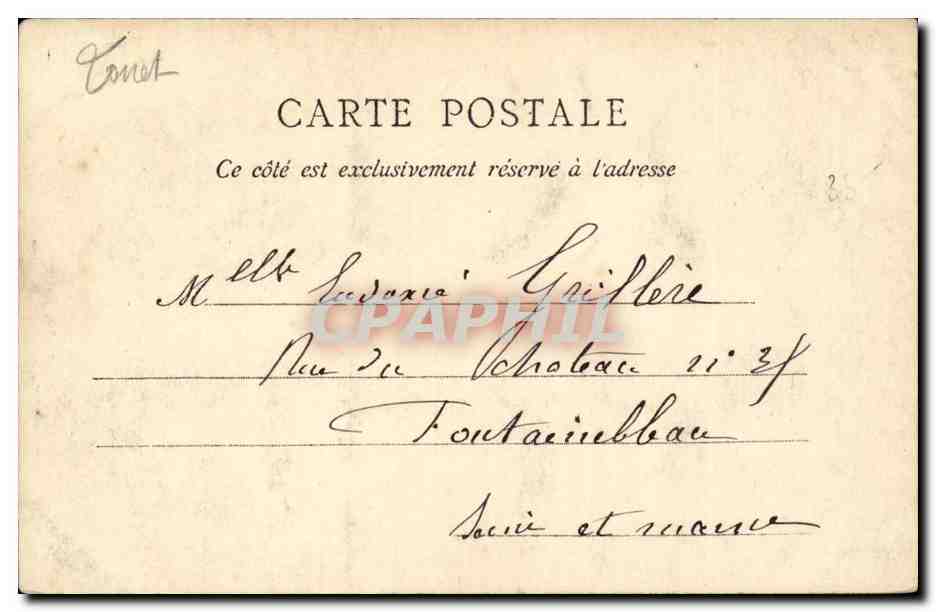 Tonet
CARTE POSTALE
Ce côté est exclusivement réservé à l'adresse
35
Melle Eudoxie Grillère
CPAPHIL
Rue du Chateau n° 35
Fontainebleau
Seine et marne